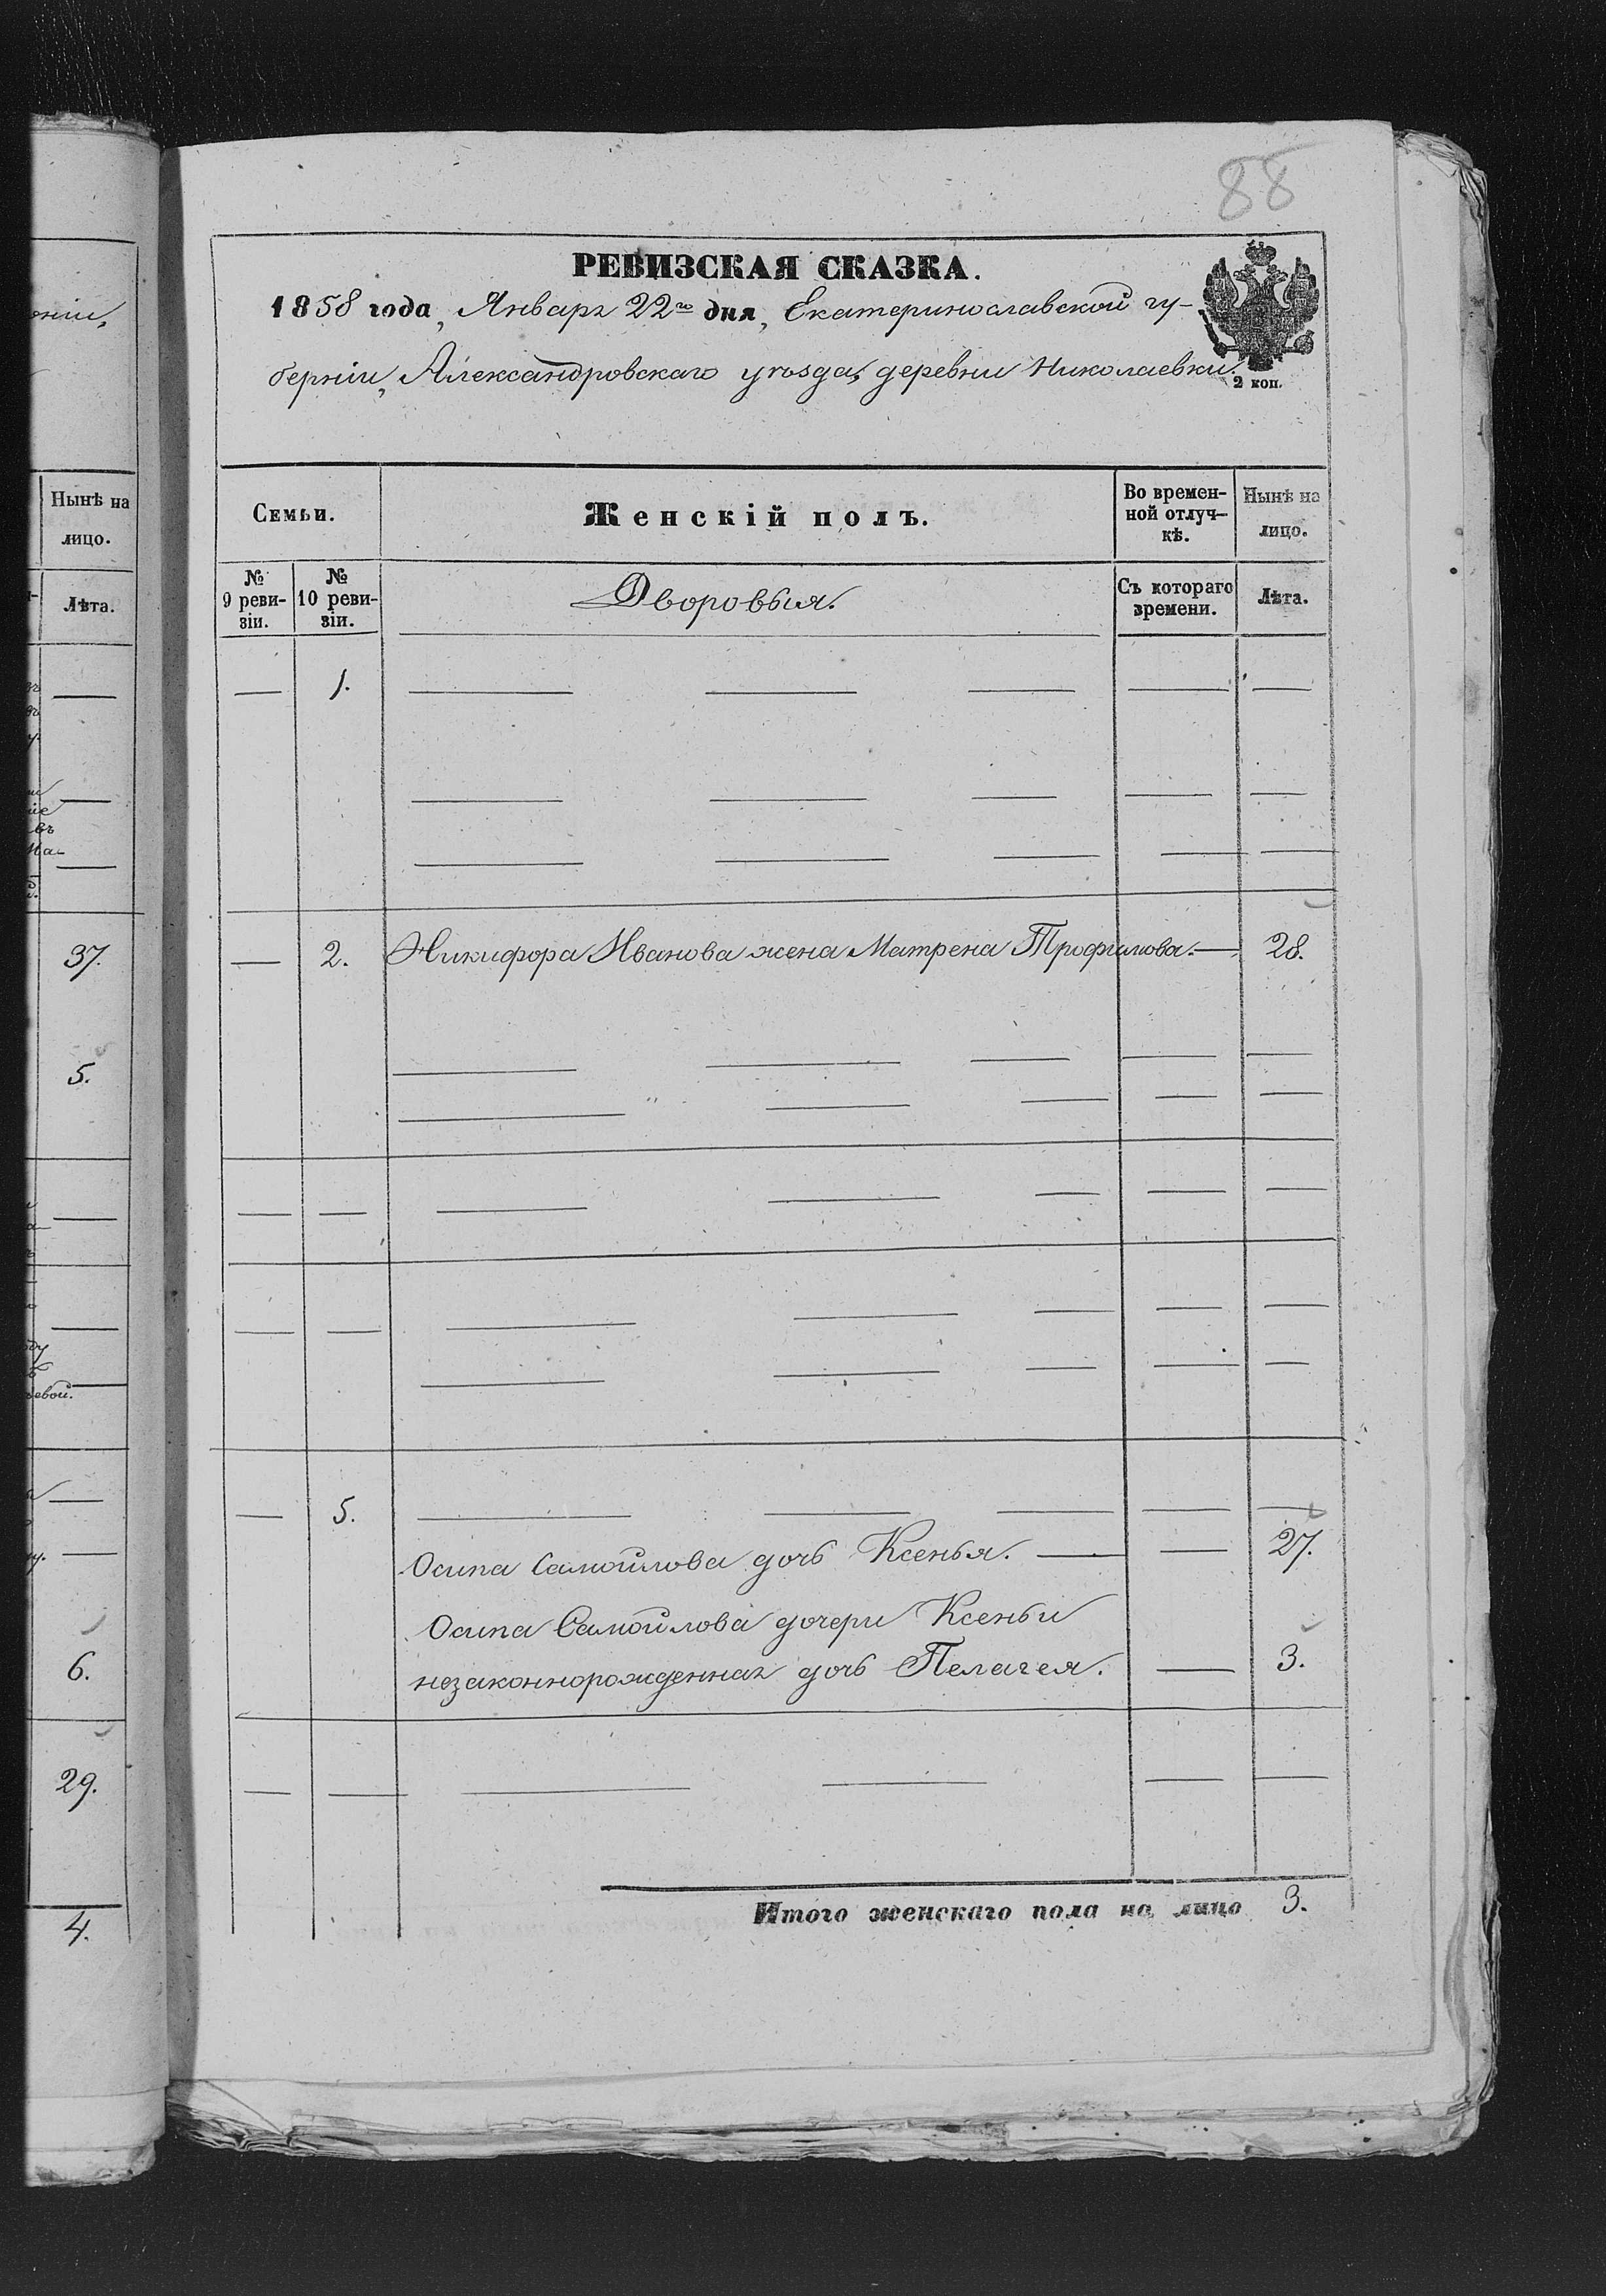 88
РЕВИЗСКАЯ СКАЗКА.
1858 года, Января 22го дня, Екатеринославской гу-
берніи, Александровскаго уѣзда, деревни Николаевки.
2 коп.
Семьи. Женскій полъ. Во времен-ной отлуч-кѣ. Нынѣ на лицо.
№ 9 реви-зіи. № 10 реви-зіи. Дворовыя. Съ котораго времени. Лѣта.
— 1. — — — — —
— — — — —
— — — — —
— 2. Никифора Иванова жена Матрена Трофимова. — 28.
— — — — —
— — — — —
— — — — — — —
— — — — — — —
— — — — —
— 5. — — — — —
Осипа Самойлова дочь Ксенья. — — 27.
Осипа Самойлова дочери Ксеньи
незаконнорожденная дочь Пелагея. — 3.
— — — — — —
Итого женскаго пола на лицо 3.
Нынѣ на
лицо.
Лѣта.
—
—
—
37.
5.
—
—
евой. —
—
—
6.
29.
4.